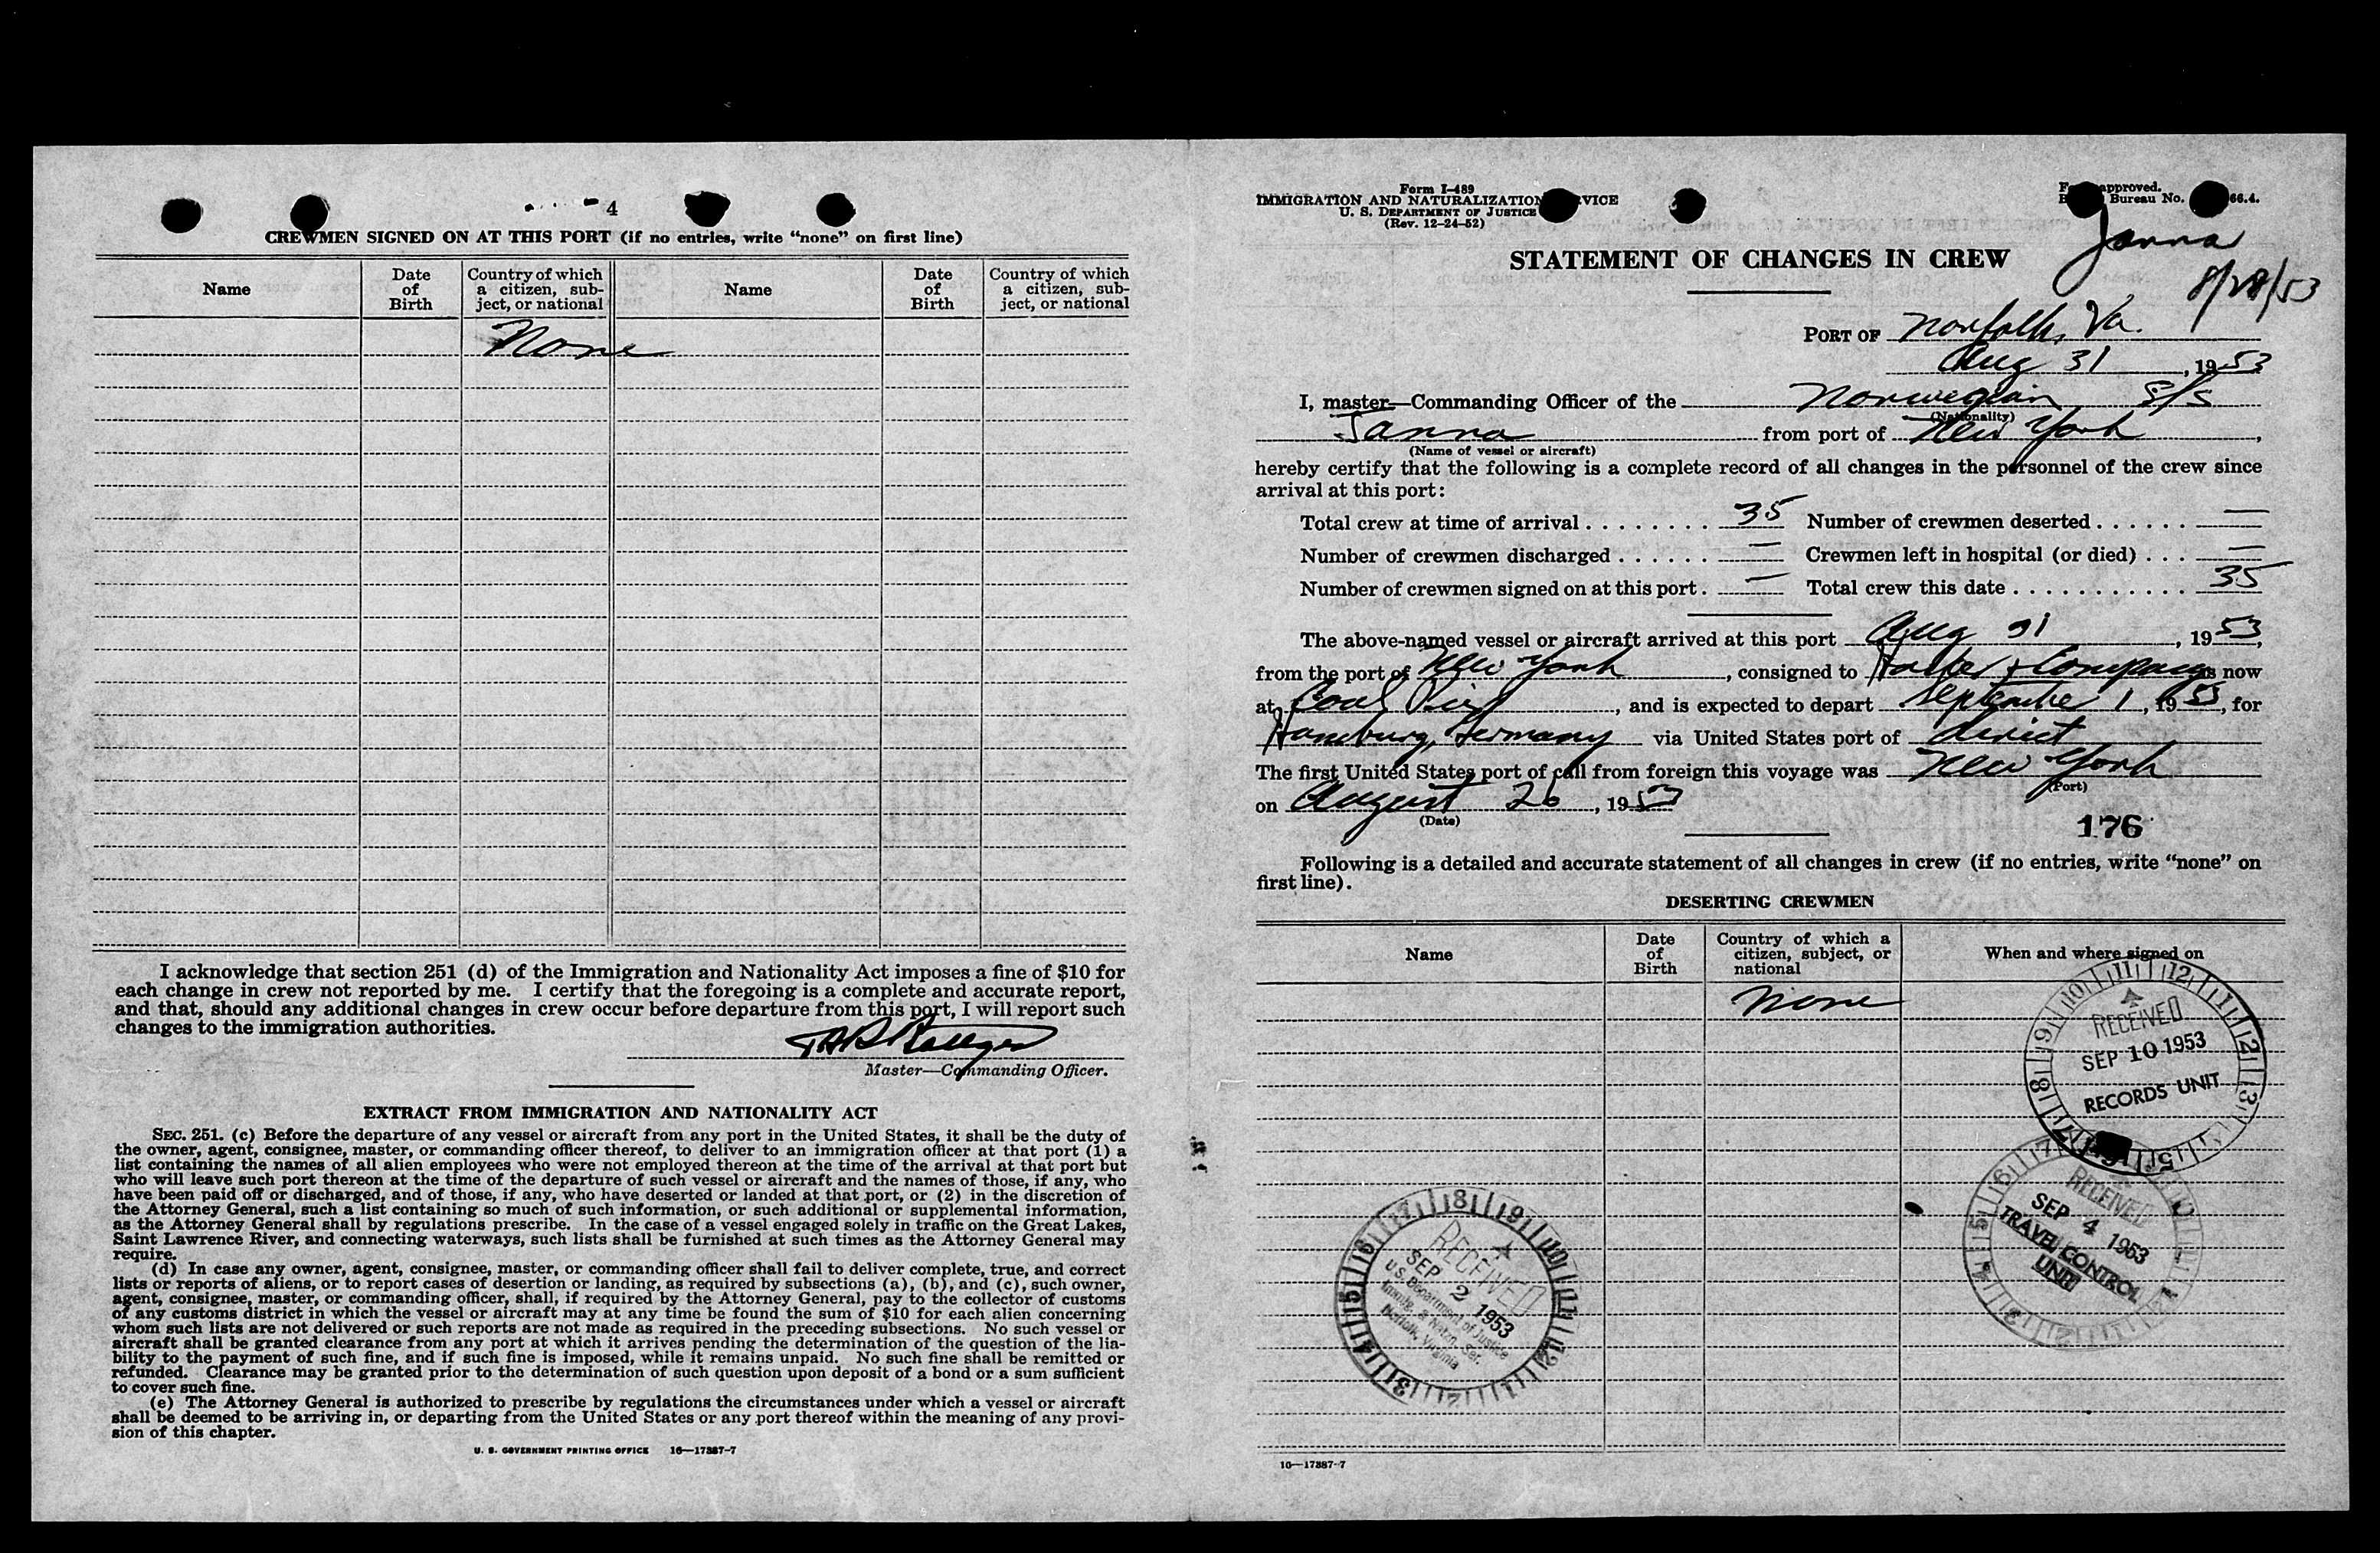 4
CREWMEN SIGNED ON AT THIS PORT (if no entries, write “none” on first line)
Name
Date of Birth
Country of which a citizen, subject, or national
Name
Date of Birth
Country of which a citizen, subject, or national
None
I acknowledge that section 251 (d) of the Immigration and Nationality Act imposes a fine of $10 for
each change in crew not reported by me. I certify that the foregoing is a complete and accurate report,
and that, should any additional changes in crew occur before departure from this port, I will report such
changes to the immigration authorities.
Master—Commanding Officer.
EXTRACT FROM IMMIGRATION AND NATIONALITY ACT
SEC. 251. (c) Before the departure of any vessel or aircraft from any port in the United States, it shall be the duty of
the owner, agent, consignee, master, or commanding officer thereof, to deliver to an immigration officer at that port (1) a
list containing the names of all alien employees who were not employed thereon at the time of the arrival at that port but
who will leave such port thereon at the time of the departure of such vessel or aircraft and the names of those, if any, who
have been paid off or discharged, and of those, if any, who have deserted or landed at that port, or (2) in the discretion of
the Attorney General, such a list containing so much of such information, or such additional or supplemental information,
as the Attorney General shall by regulations prescribe. In the case of a vessel engaged solely in traffic on the Great Lakes,
Saint Lawrence River, and connecting waterways, such lists shall be furnished at such times as the Attorney General may
require.
(d) In case any owner, agent, consignee, master, or commanding officer shall fail to deliver complete, true, and correct
lists or reports of aliens, or to report cases of desertion or landing, as required by subsections (a), (b), and (c), such owner,
agent, consignee, master, or commanding officer, shall, if required by the Attorney General, pay to the collector of customs
of any customs district in which the vessel or aircraft may at any time be found the sum of $10 for each alien concerning
whom such lists are not delivered or such reports are not made as required in the preceding subsections. No such vessel or
aircraft shall be granted clearance from any port at which it arrives pending the determination of the question of the lia-
bility to the payment of such fine, and if such fine is imposed, while it remains unpaid. No such fine shall be remitted or
refunded. Clearance may be granted prior to the determination of such question upon deposit of a bond or a sum sufficient
to cover such fine.
(e) The Attorney General is authorized to prescribe by regulations the circumstances under which a vessel or aircraft
shall be deemed to be arriving in, or departing from the United States or any port thereof within the meaning of any provi-
sion of this chapter.
U. S. GOVERNMENT PRINTING OFFICE 16—17887-7
Form I-489
IMMIGRATION AND NATURALIZATION VICE
U. S. DEPARTMENT OF JUSTICE
(Rev. 12-24-52)
approved.
Bureau No. 66.4.
Janna
8/28/53
STATEMENT OF CHANGES IN CREW
PORT OF Norfolk, Va.
Aug 31, 1953
I, master—Commanding Officer of the Norwegian S/S
(Nationality)
Janna from port of New York,
(Name of vessel or aircraft)
hereby certify that the following is a complete record of all changes in the personnel of the crew since
arrival at this port:
Total crew at time of arrival . . . . . . . . 35 Number of crewmen deserted . . . . . . —
Number of crewmen discharged . . . . . . — Crewmen left in hospital (or died) . . . —
Number of crewmen signed on at this port . — Total crew this date . . . . . . . . . . . 35
The above-named vessel or aircraft arrived at this port Aug 31, 1953,
from the port of New York, consigned to & Company is now
at Coal Pier, and is expected to depart September 1, 1953, for
Hamburg, Germany via United States port of direct
The first United States port of call from foreign this voyage was New York
(Port)
on August 26, 1953
(Date)
176
Following is a detailed and accurate statement of all changes in crew (if no entries, write “none” on
first line).
DESERTING CREWMEN
Name
Date of Birth
Country of which a citizen, subject, or national
When and where signed on
None
RECEIVED
SEP 10 1953
RECORDS UNIT
RECEIVED
SEP 4 1953
TRAVEL CONTROL
UNIT
RECEIVED
SEP 2 1953
U.S. Department of Justice
Immig. & Natzn. Ser.
Norfolk, Virginia
16—17887-7